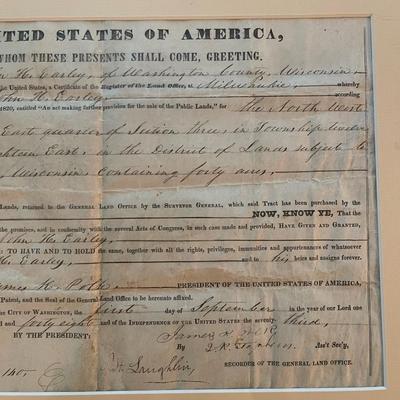 NITED STATES OF AMERICA,
WHOM THESE PRESENTS SHALL COME, GREETING.
n H. Earley, of Washington County, Wisconsin
the United States, a Certificate of the Register of the Land Office, at Milwaukie, whereby
ohn H. Earley according
1820, entitled "An act making further provision for the sale of the Public Lands," for the North West
East quarter of Section three in Township
ghteen East, in the District of Lands subject to
Wisconsin containing forty acres,
Lands, returned to the GENERAL LAND OFFICE by the SURVEYOR GENERAL, which said Tract has been purchased by the
NOW, KNOW YE, That the
the promises, and in conformity with the several Acts of Congress, in such case made and provided, HAVE GIVEN AND GRANTED,
John H. Earley,
TO HAVE AND TO HOLD the same, together with all the rights, privileges, immunities and appurtenances of whatsoever
H. Earley, and to his heirs and assigns forever.
ames K. Polk, PRESIDENT OF THE UNITED STATES OF AMERICA,
Patent, and the Seal of the General Land Office to be hereunto affixed.
the CITY OF WASHINGTON, the first day of September in the year of our Lord one
and forty eight and of the INDEPENDENCE OF THE UNITED STATES the seventy third,
BY THE PRESIDENT: James K. Polk
By J. K. Stephens, Ass't Sec'y.
Laughlin, RECORDER OF THE GENERAL LAND OFFICE.